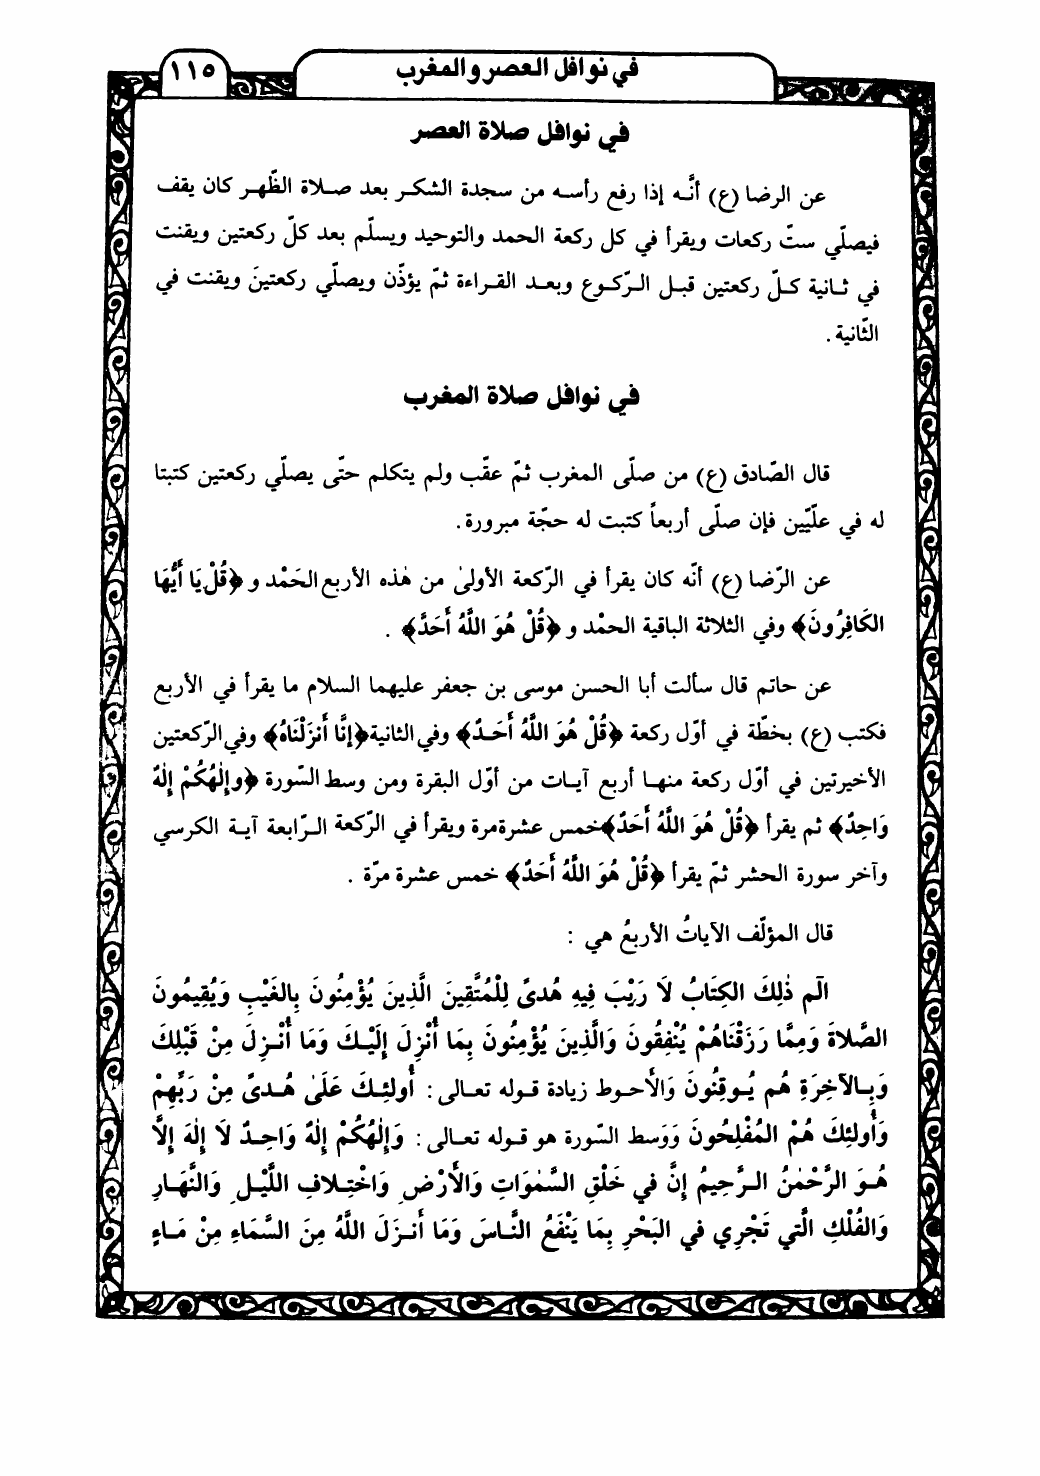 في نوافل العصر والمغرب
١١٥
في نوافل صلاة العصر
عن الرضا (ع) أنَّـه إذا رفع رأسـه من سجدة الشكـر بعد صـلاة الظّهـر كان يقف
فيصلّي ستّ ركعات ويقرأ في كل ركعة الحمد والتوحيد ويسلّم بعد كلّ ركعتين ويقنت
في ثـانية كـلّ ركعتين قبـل الـرّكـوع وبعـد القـراءة ثمّ يؤذّن ويصلّي ركعتينَ ويقنت في
الثّانية .
في نوافل صلاة المغرب
قال الصّادق (ع) من صلّى المغرب ثمّ عقّب ولم يتكلم حتّى يصلّي ركعتين كتبتا
له في علّيّين فإن صلّى أربعاً كتبت له حجّة مبرورة .
عن الرّضا (ع) أنّه كان يقرأ في الرّكعة الأولىٰ من هٰذه الأربع الحَمْد و ﴿قُلْ يَا أَيُّهَا
الكَافِرُونَ﴾ وفي الثلاثة الباقية الحمْد و ﴿قُلْ هُوَ اللَّهُ أَحَدٌ﴾ .
عن حاتم قال سألت أبا الحسن موسى بن جعفر عليهما السلام ما يقرأ في الأربع
فكتب (ع) بخطّة في أوّل ركعة ﴿قُلْ هُوَ اللَّهُ أَحَـدٌ﴾ وفي الثانية ﴿إنَّا أَنزَلْنَاهُ﴾ وفي الرّكعتين
الأخيرتين في أوّل ركعة منهـا أربع آيـات من أوّل البقرة ومن وسط السّورة ﴿وإلٰهُكُمْ إلٰهٌ
وَاحِدٌ﴾ ثم يقرأ ﴿قُلْ هُوَ اللَّهُ أحَدٌ﴾ خمس عشرة مرة ويقرأ في الرّكعة الـرّابعة آيـة الكرسي
وآخر سورة الحشر ثمّ يقرأ ﴿قُلْ هُوَ اللَّهُ أَحَدٌ﴾ خمس عشرة مرّة .
قال المؤلّف الآياتُ الأربعُ هي :
الٓم ذٰلِكَ الكِتَابُ لَا رَيْبَ فِيهِ هُدىً لِلْمُتَّقِينَ الَّذِينَ يُؤْمِنُونَ بِالغَيْبِ وَيُقِيمُونَ
الصَّلاةَ وَمِمَّا رَزَقْنَاهُمْ يُنْفِقُونَ وَالَّذِينَ يُؤْمِنُونَ بِمَا أُنْزِلَ إلَيْـكَ وَمَا أُنْـزِلَ مِنْ قَبْلِكَ
وَبِـالآخِرَةِ هُم يُـوقِنُونَ وَالأحـوط زيادة قـوله تعـالى : أُولئِـكَ عَلَىٰ هُـدىً مِنْ رَبِّهِمْ
وَأُولئِكَ هُمْ المُفْلِحُونَ وَوَسط السّورة هو قـوله تعـالى : وَإِلٰهُكُمْ إلٰهٌ وَاحِـدٌ لَا إلٰهَ إلَّا
هُـوَ الرَّحْمٰنُ الـرَّحِيمُ إنَّ في خَلْقِ السَّمٰوَاتِ وَالأَرْضِ وَاخْتِـلافِ اللَّيْـلِ وَالنَّهَـارِ
وَالفُلْكِ الَّتي تَجْرِي في البَحْرِ بِمَا يَنْفَعُ النَّـاسَ وَمَا أَنـزَلَ اللَّهُ مِنَ السَّمَاءِ مِنْ مَـاءٍ